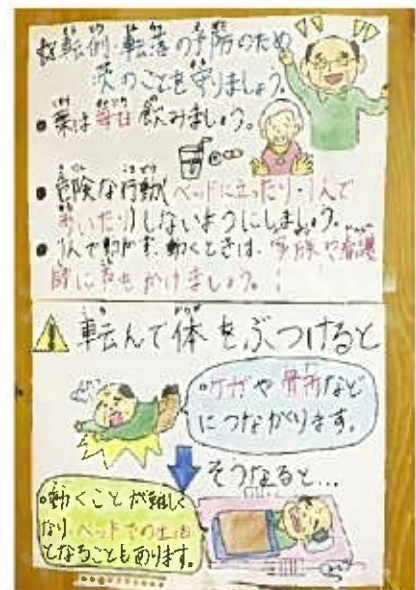 転倒・転落の予防のため
次のことを守りましょう。
•薬は毎日飲みましょう。
•危険な行動(ベッドに立ったり・1人で
歩いたり)しないようにしましょう。
•1人で動かず、動くときは、家族や看護
師に声をかけましょう。!
転んで体をぶつけると
•ケガや骨折など
につながります。
そうなると…
•動くことが難しく
なりベッドでの生活
となることもあります。